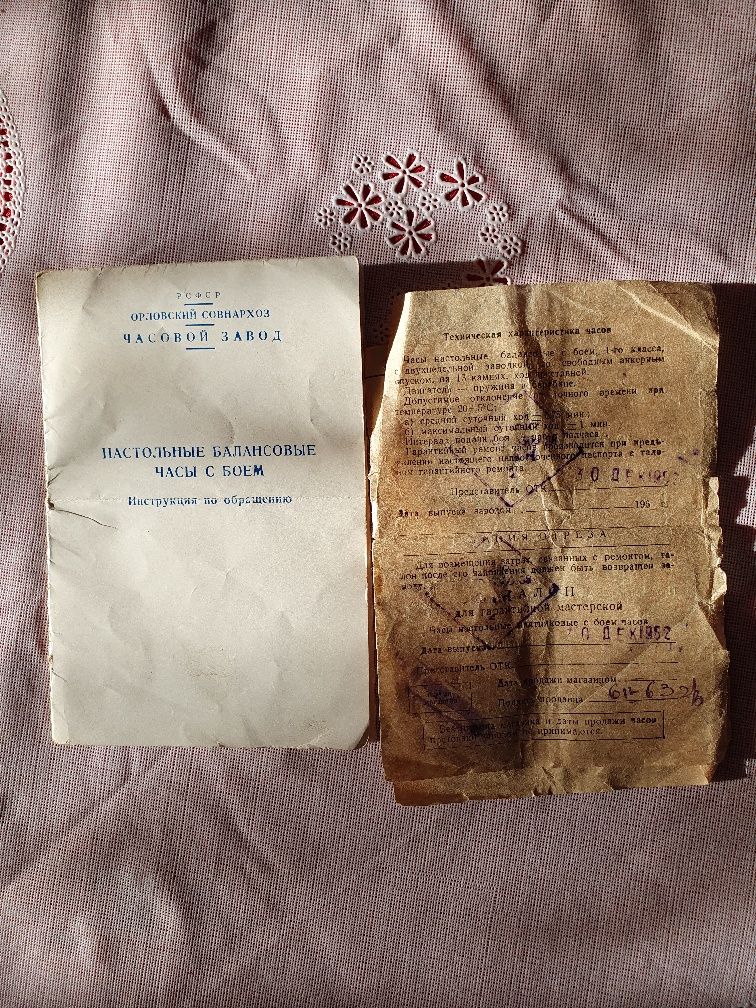 РСФСР
ОРЛОВСКИЙ СОВНАРХОЗ
ЧАСОВОЙ ЗАВОД
НАСТОЛЬНЫЕ БАЛАНСОВЫЕ
ЧАСЫ С БОЕМ
Инструкция по обращению
Техническая характеристика часов
Часы настольные балансовые с боем, 1-го класса,
с двухнедельной заводкой, со свободным анкерным
спуском, на 13 камнях, ход приставной.
Двигатель — пружина в барабане.
Допустимое отклонение суточного времени при
температуре 20±5°С:
а) средний суточный ход
б) максимальный суточный ход ± 1 мин.
Интервал подачи боя
Гарантийный ремонт часов производится при предъ-
явлении настоящего паспорта с тало-
ном гарантийного ремонта.
Представитель ОТК
Дата выпуска заводом 196 г.
ЛИНИЯ ОТРЕЗА
Для возмещения затрат, связанных с ремонтом, та-
лон после его заполнения должен быть возвращен за-
воду.
ТАЛОН
для гарантийной мастерской
Часы настольные с боем часов
Дата выпуска
Представитель ОТК
Дата продажи магазином
Подпись продавца
Без штампа магазина и даты продажи часов
не принимаются.